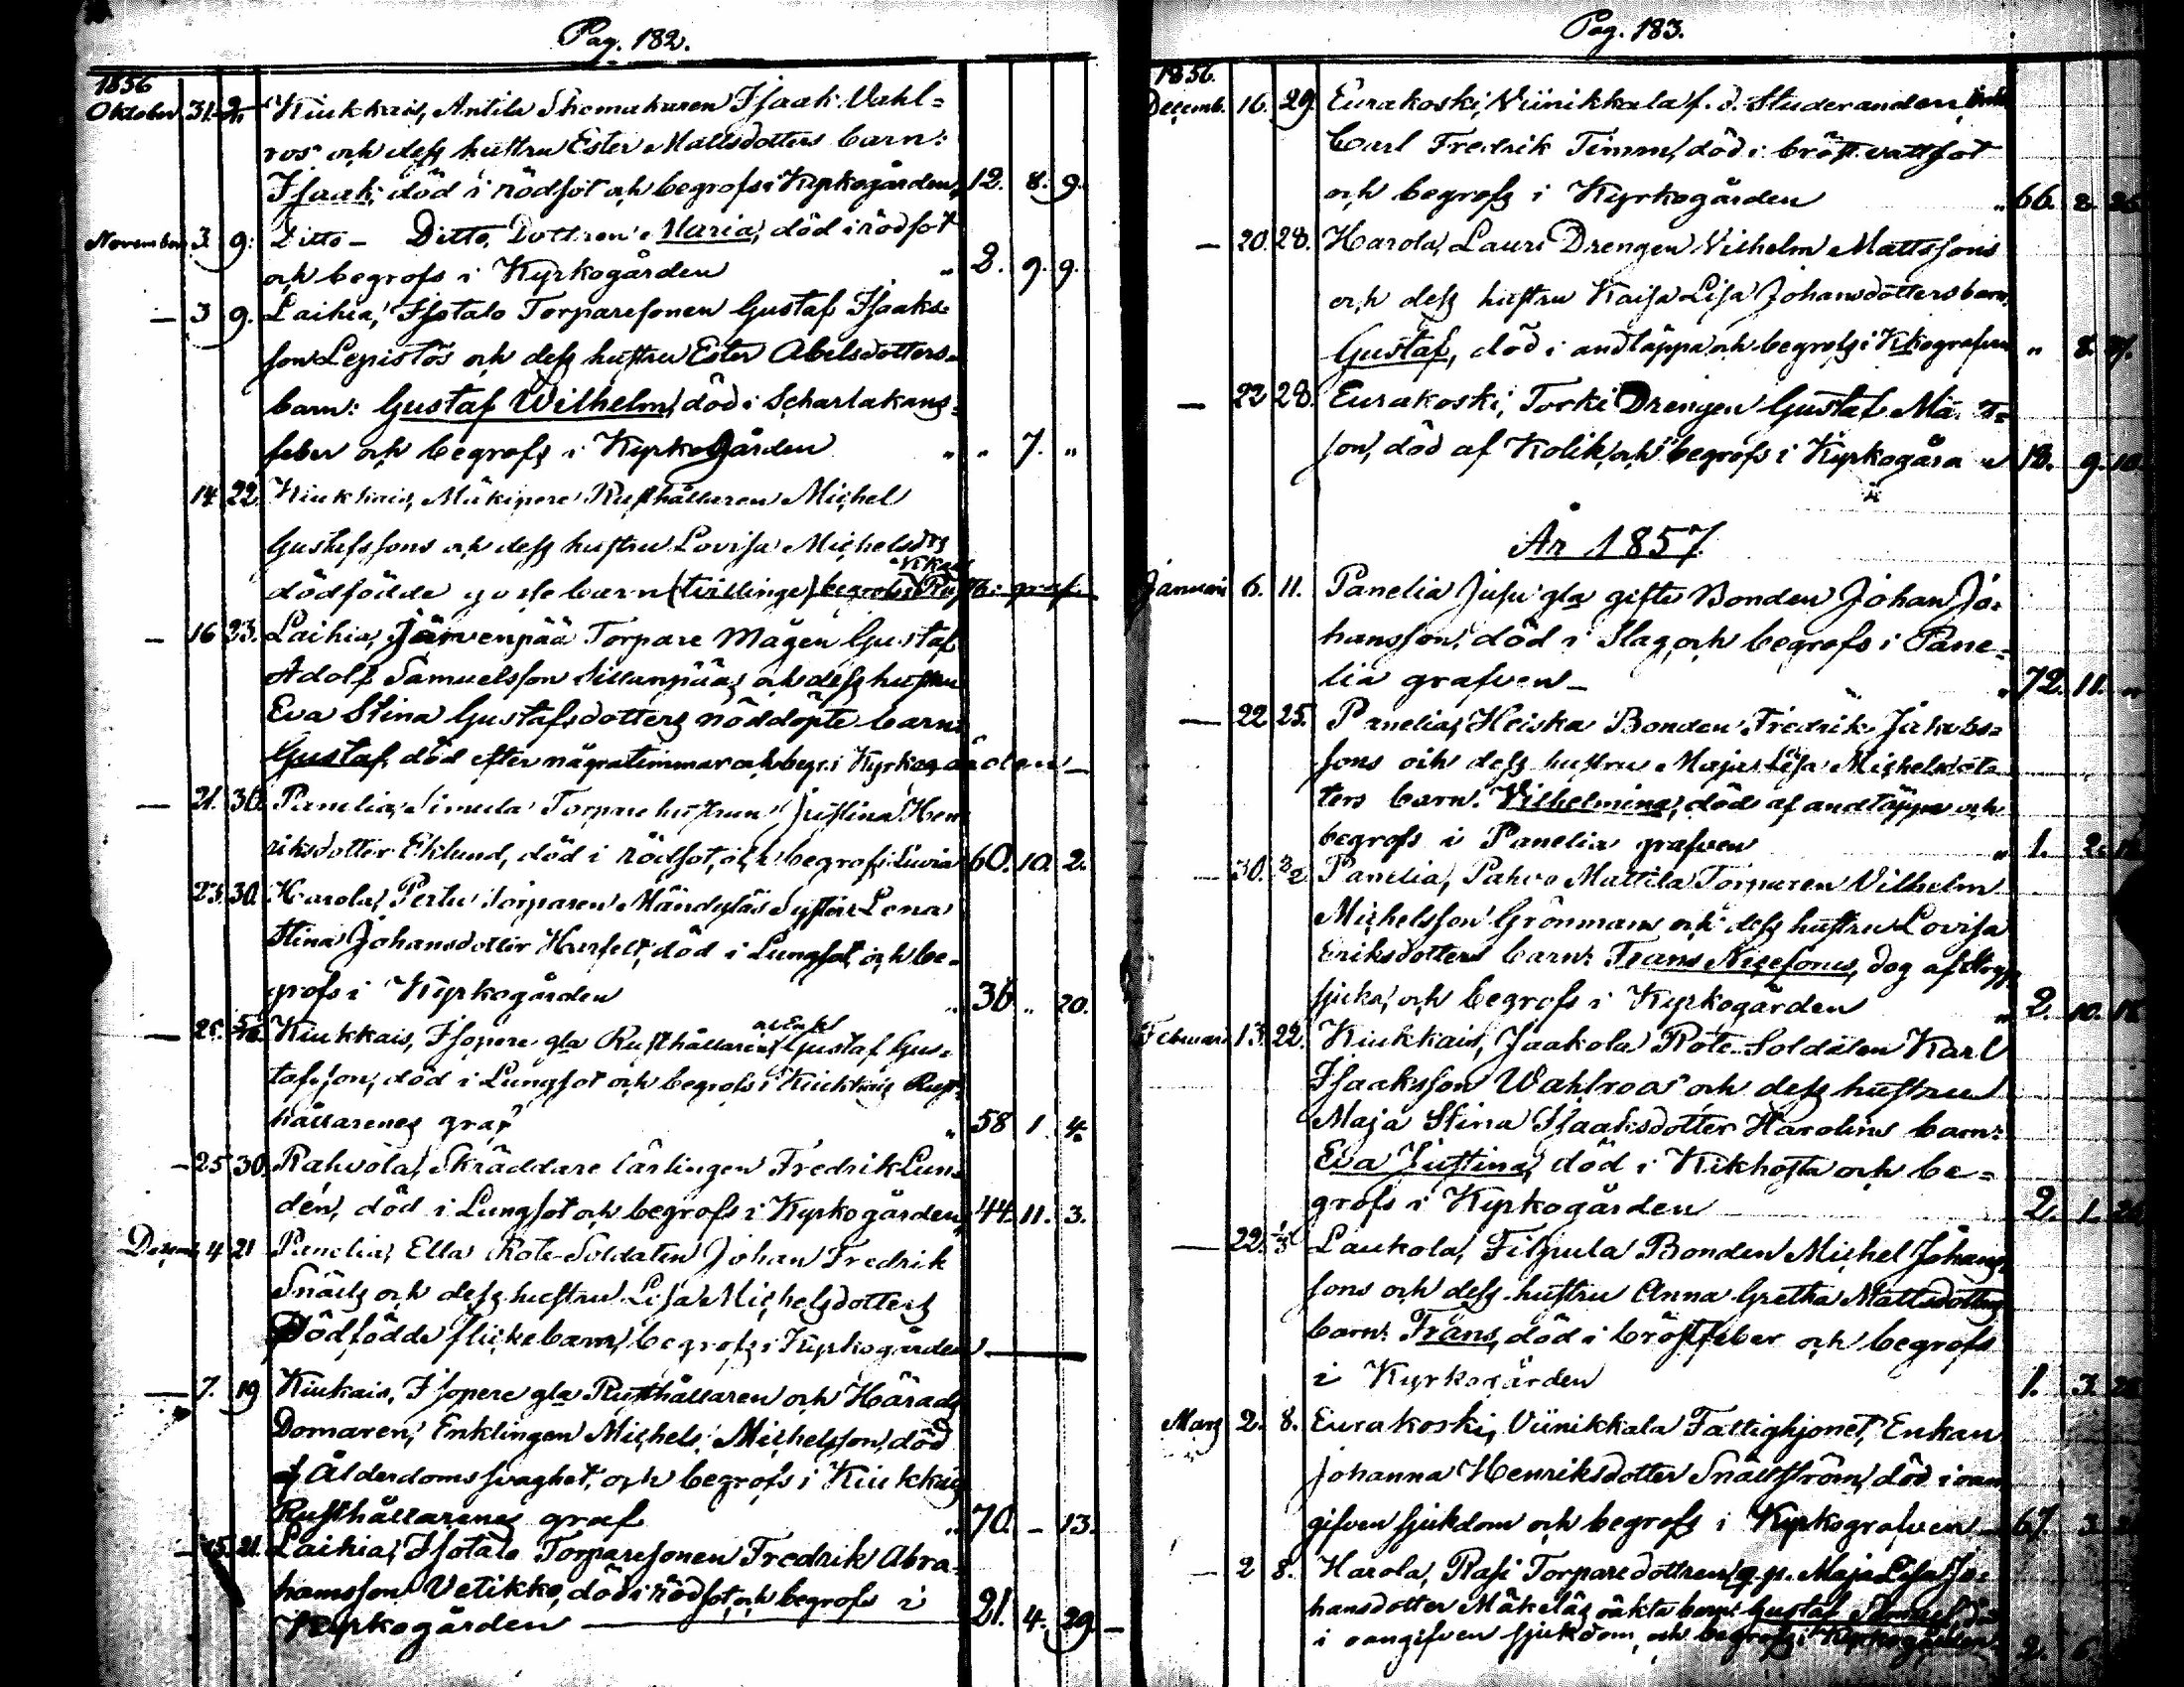 Pag. 182.
1856
Oktober 31. Kiukkais, Antila Skomakaren Isaak Vahl=
ros och dess hustru Ester Mattsdotters barn:
Isaak, död i rödsot och begrofs i Kyrkogården, 12. 8. 9.
November 3. 9. Ditto - Ditto, Dottren Maria, död i rödsot
och begrofs i Kyrkogården " 2. 9. 9.
— 3 9. Laihia, Isotalo Torparesonen Gustaf Isaks=
son Lepistös och dess hustru Ester Abelsdotters
barn: Gustaf Wilhelm, död i Scharlakans=
feber och begrofs i Kyrkogården " " 7. "
14 22. Kiukkais, Mäkipere Rusthållaren Michel
Gustafssons och dess hustru Lovisa Michelsdrs
dödfödde gosse barn (tvillinge) begrofs i
— 16 23. Laihia, Järvenpää Torpare Mågen Gustaf
Adolf Samuelsson Sillanpääs och dess hustru
Eva Stina Gustafsdotters nöddöpte barn:
Gustaf, död efter några timmar och begr. i Kyrkogården —
— 21. 30. Panelia, Simula Torpare hustrun Justina Hen
riksdotter Eklund, död i rödsot, och begrofs i Luvia 60. 10. 2.
23. 30. Harola, Pertu Torparen Mändyläs Syster Lena
Stina Johansdotter Hurfelt, död i Lungsot och be=
grofs i Kyrkogården " 36 " 20.
— 25. Kiukkais, Isopere gla Rusthållaren Gustaf Gus=
tafsson, död i Lungsot och begrofs i Kiukkais Rust=
hållarenes graf " 58 1. 4.
— 25 30. Rahvola, Skräddare lärlingen Fredrik Lun=
dén, död i Lungsot och begrofs i Kyrkogården, 44. 11. 3.
4 21 Panelia, Ella Rote-Soldaten Johan Fredrik
Snälls och dess hustru Lisa Michelsdotters
Dödfödde flickebarn, begrofs i Kyrkogården —
— 7. 19 Kiukais, Isopere gla Rusthållaren och Härads
Domaren, Enklingen Michels Michelsson, död
af Ålderdoms svaghet, och begrofs i Kiukkais
Rusthållarenes graf " 70. - 13.
— 15. 21. Laihia, Isotalo Torparesonen Fredrik Abra=
hamsson Vetikko, död i rödsot, och begrofs i
Kyrkogården — 21. 4. 29.
Pag. 183.
1856.
Decemb. 16. 29. Eurakoski, Viinikkala f. d. Studeranden
Carl Fredrik Timme, död i bröst vattsot
och begrofs i Kyrkogården " 66. 2.
— 20. 28. Harola, Lauri Drengen Vilhelm Mattssons
och dess hustru Kaisa Lisa Johansdotters barn,
Gustaf, död i andtäppa och begrofs i " 8.
— 22 28. Eurakoski, Torki Drengen Gustaf
son, död af Kolik, och begrofs i 18. 9. 10
År 1857.
Januari 6. 11. Panelia Jusu gla gifte Bonden Johan Jo=
hansson, död i Slag, och begrofs i Pane=
lia grafven — " 72. 11. "
— 22 25. Panelia, Heiska Bonden Fredrik Jakobs=
sons och dess hustru Maja Lisa Michelsdot=
ters barn: Vilhelmina, död af andtäppa och
begrofs i Panelia grafven " 1. 2.
— 30. Panelia, Pahvo Mattila Torparen Vilhelm
Michelsson Grönmans och dess hustru Lovisa
Eriksdotters barn: Frans dog af
sjuka, och begrofs i Kyrkogården " 2. 10.
Februari 13. 22. Kiukkais, Jaakola Rote-Soldaten Karl
Isaaksson Wahlroos och dess hustru
Maja Stina Isaaksdotter Harolins barn:
Eva Justina, död i Kikhosta och be=
grofs i Kyrkogården 2. 1.
— 22. Laukola, Filpula Bonden Michel Johans
sons och dess hustru Anna Gretha Mattsdotters
barn: Frans, död i bröstfeber och begrofs
i Kyrkogården 1. 3.
Mars 2. 8. Eurakoski, Viinikkala Fattighjonet, Enkan
Johanna Henriksdotter Snällström, död i oan
gifven sjukdom och begrofs i Kyrkografven — 67. 3.
— 2 8. Harola, Rasi Torparedottren, Maja Lisa Jo=
hansdotter Mäkeläs oäkta barn: Gustaf
i oangifven sjukdom, och begrofs i Kyrkogården 2. 6.